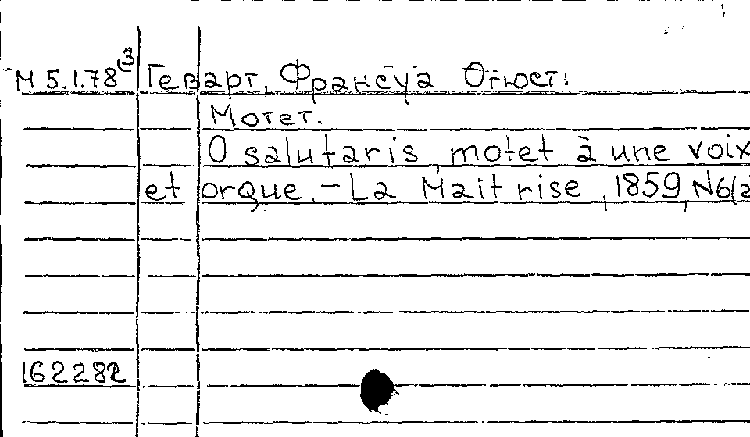 М 5.1.78 Геварт, Франсуа Огюст.
Мотет.
O salutaris, motet à une voix
et orque. - La Maitrise, 1859, N6(2
162282